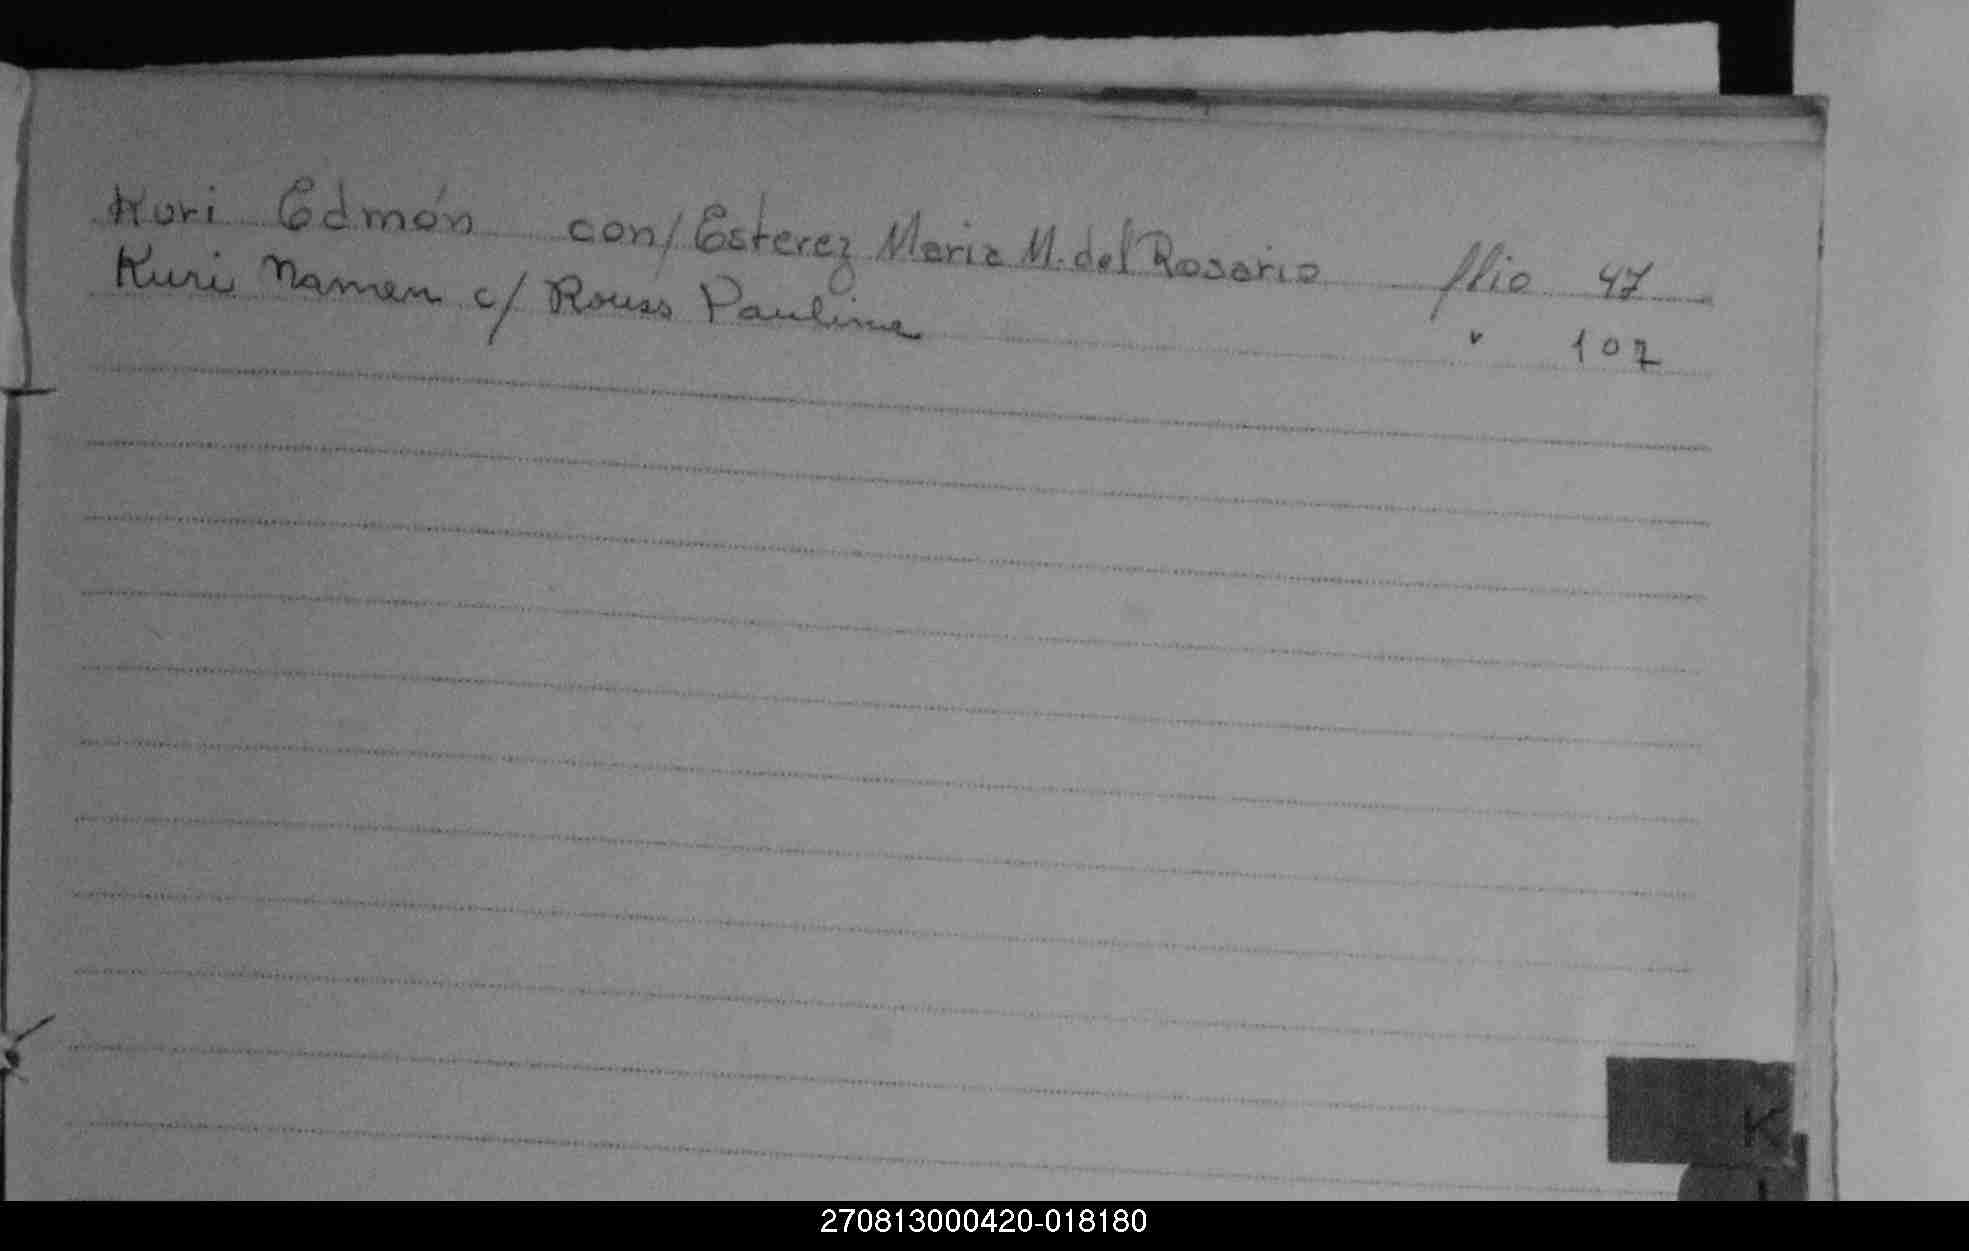 Kuri Edmón con/ Esterez Maria M. del Rosario flio 47
Kuri Namen c/ Rouss Pauline " 107
K
L
270813000420-018180